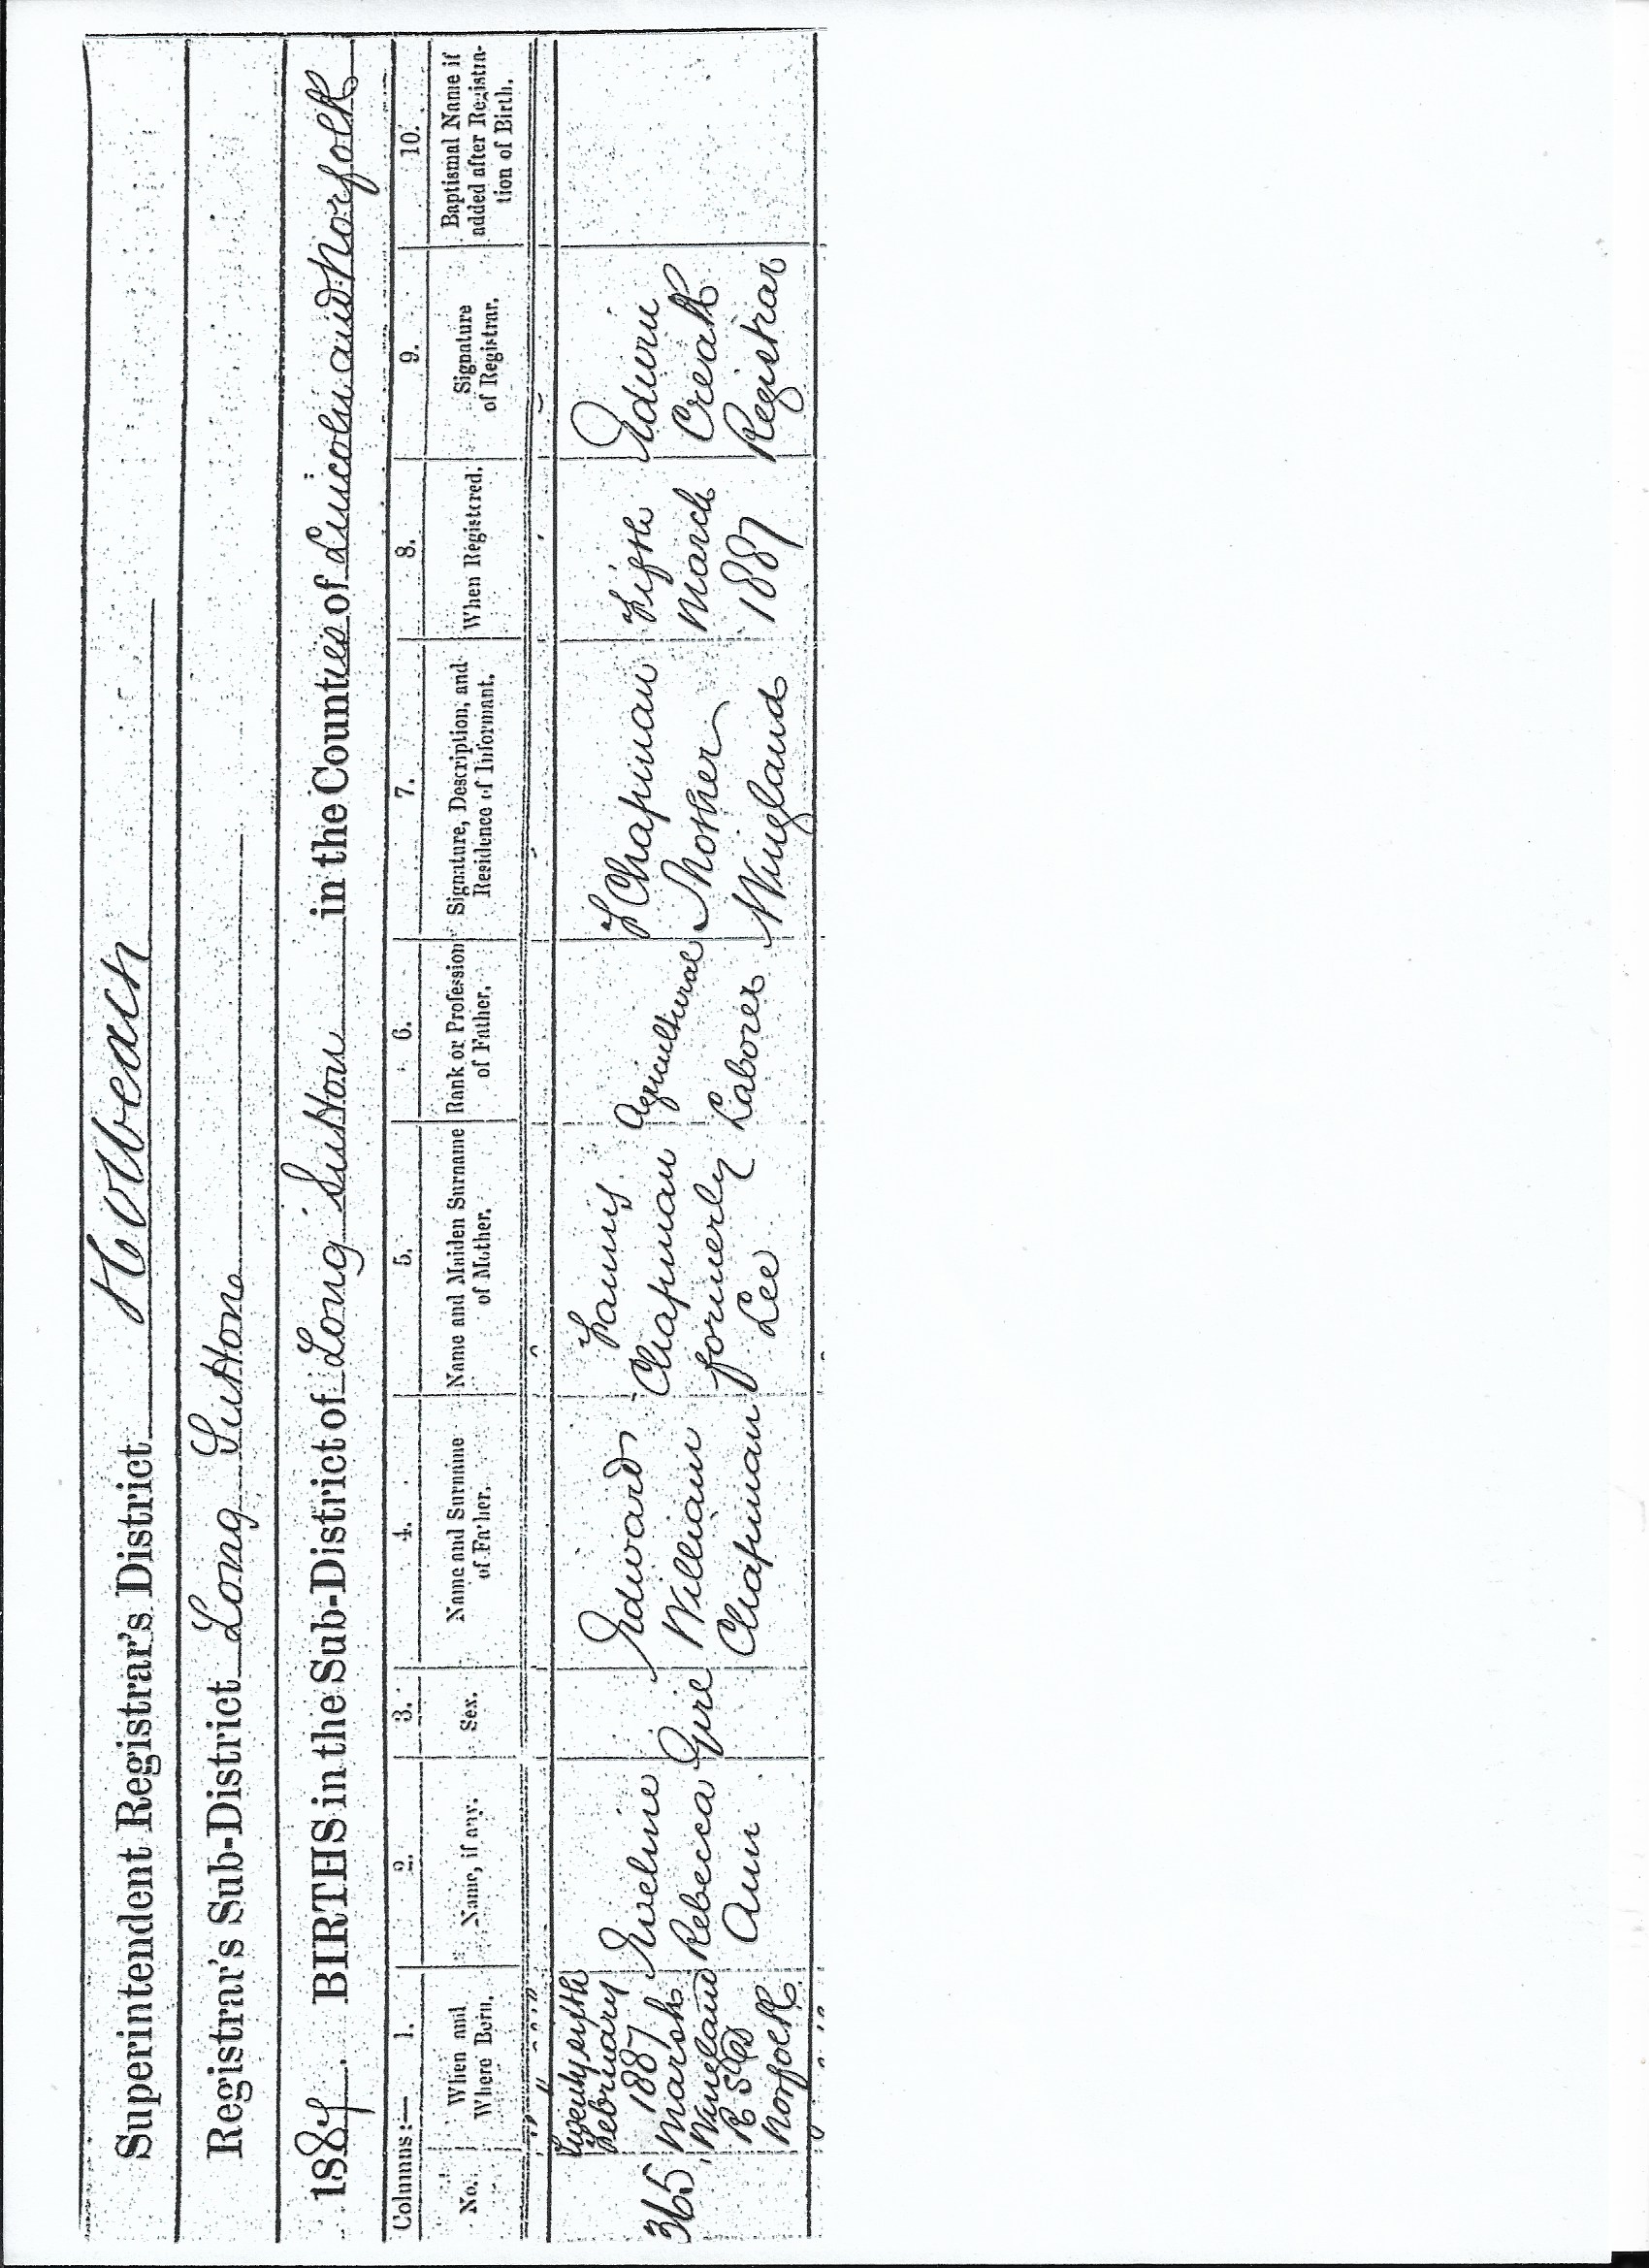 Superintendent Registrar's District Holbeach
Registrar's Sub-District Long Sutton
1887. BIRTHS in the Sub-District of Long Sutton in the Counties of Lincoln and Norfolk
Columns:— 1. 2. 3. 4. 5. 6. 7. 8. 9. 10.
No. When and Where Born. Name, if any. Sex. Name and Surname of Father. Name and Maiden Surname of Mother. Rank or Profession of Father. Signature, Description, and Residence of Informant. When Registered. Signature of Registrar. Baptismal Name if added after Registration of Birth.
365
Twenty fifth
February
1887
Marsh
Wingland
R S D
Norfolk
Eveline
Rebecca
Ann
Girl
Edward
William
Chapman
Fanny
Chapman
formerly
Lee
Agricultural
Laborer
F Chapman
Mother
Wingland
Fifth
March
1887
Edwin
Creak
Registrar